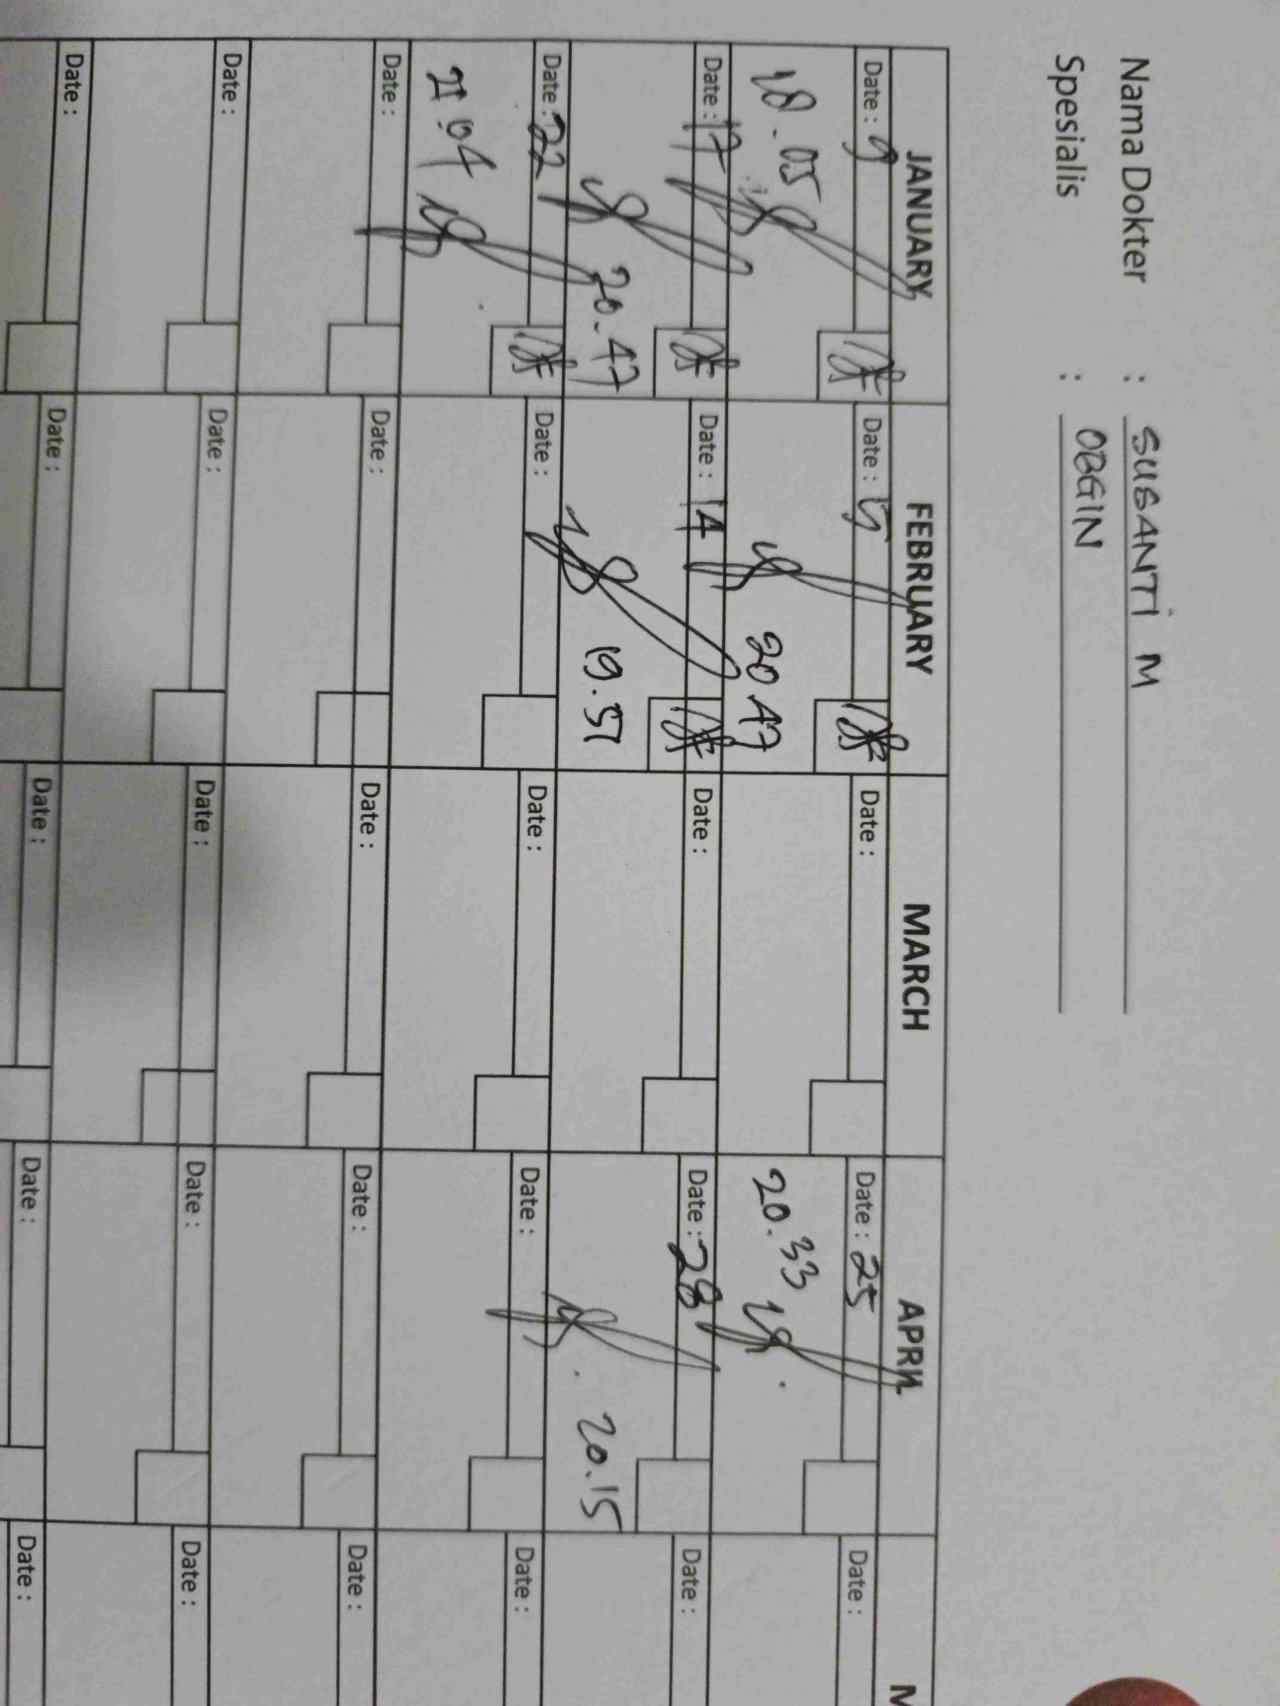 Nama Dokter : SUSANTI M
Spesialis : OBGIN
JANUARY FEBRUARY MARCH APRIL M
Date : 9 Date : 15 Date : Date : 25 Date :
18.05 20 47 20.33
Date : 17 Date : 14 Date : Date : 28 Date :
20.47 19.57 20.15
Date : 22 Date : Date : Date : Date :
21 04
Date : Date : Date : Date : Date :
Date : Date : Date : Date : Date :
Date : Date : Date : Date : Date :